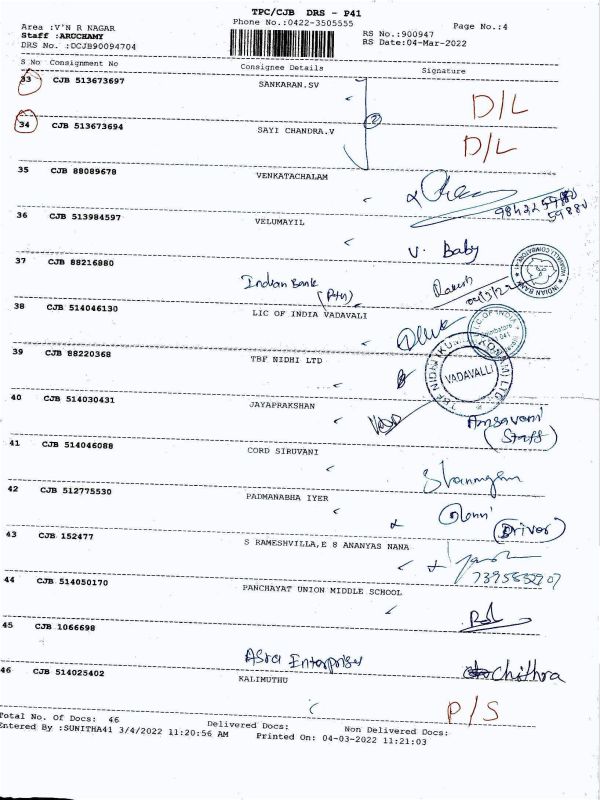 TPC/CJB DRS - P41
Area :V'N R NAGAR
Phone No.:0422-3505555
Page No.:4
Staff :ARUCHAMY
RS No.:900947
DRS No. :DCJB90094704
RS Date:04-Mar-2022
S No Consignment No Consignee Details Signature
33 CJB 513673697 SANKARAN.SV D/L
34 CJB 513673694 SAYI CHANDRA.V D/L
35 CJB 88089678 VENKATACHALAM
36 CJB 513984597 VELUMAYIL V. Baby
37 CJB 88216880 Indian Bank (P41)
38 CJB 514046130 LIC OF INDIA VADAVALI
39 CJB 88220368 TBF NIDHI LTD VADAVALLI
40 CJB 514030431 JAYAPRAKSHAN (Staff)
41 CJB 514046088 CORD SIRUVANI
42 CJB 512775530 PADMANABHA IYER (Driver)
43 CJB 152477 S RAMESHVILLA,E 8 ANANYAS NANA
44 CJB 514050170 PANCHAYAT UNION MIDDLE SCHOOL
45 CJB 1066698 Asra Enterprises Chithra
46 CJB 514025402 KALIMUTHU P/S
Total No. Of Docs: 46 Delivered Docs: Non Delivered Docs:
Entered By :SUNITHA41 3/4/2022 11:20:56 AM Printed On: 04-03-2022 11:21:03